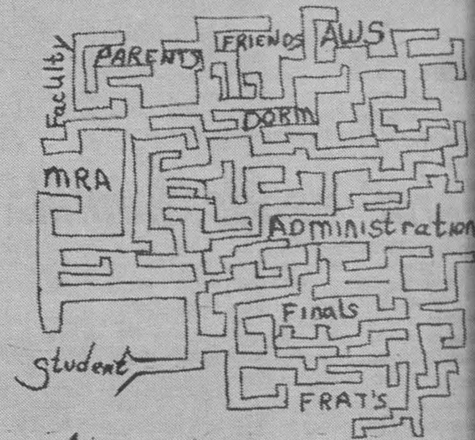 Faculty
PARENTS
FRIENDS
AWS
DORM
MRA
ADMINISTration
Finals
Student
FRAT'S